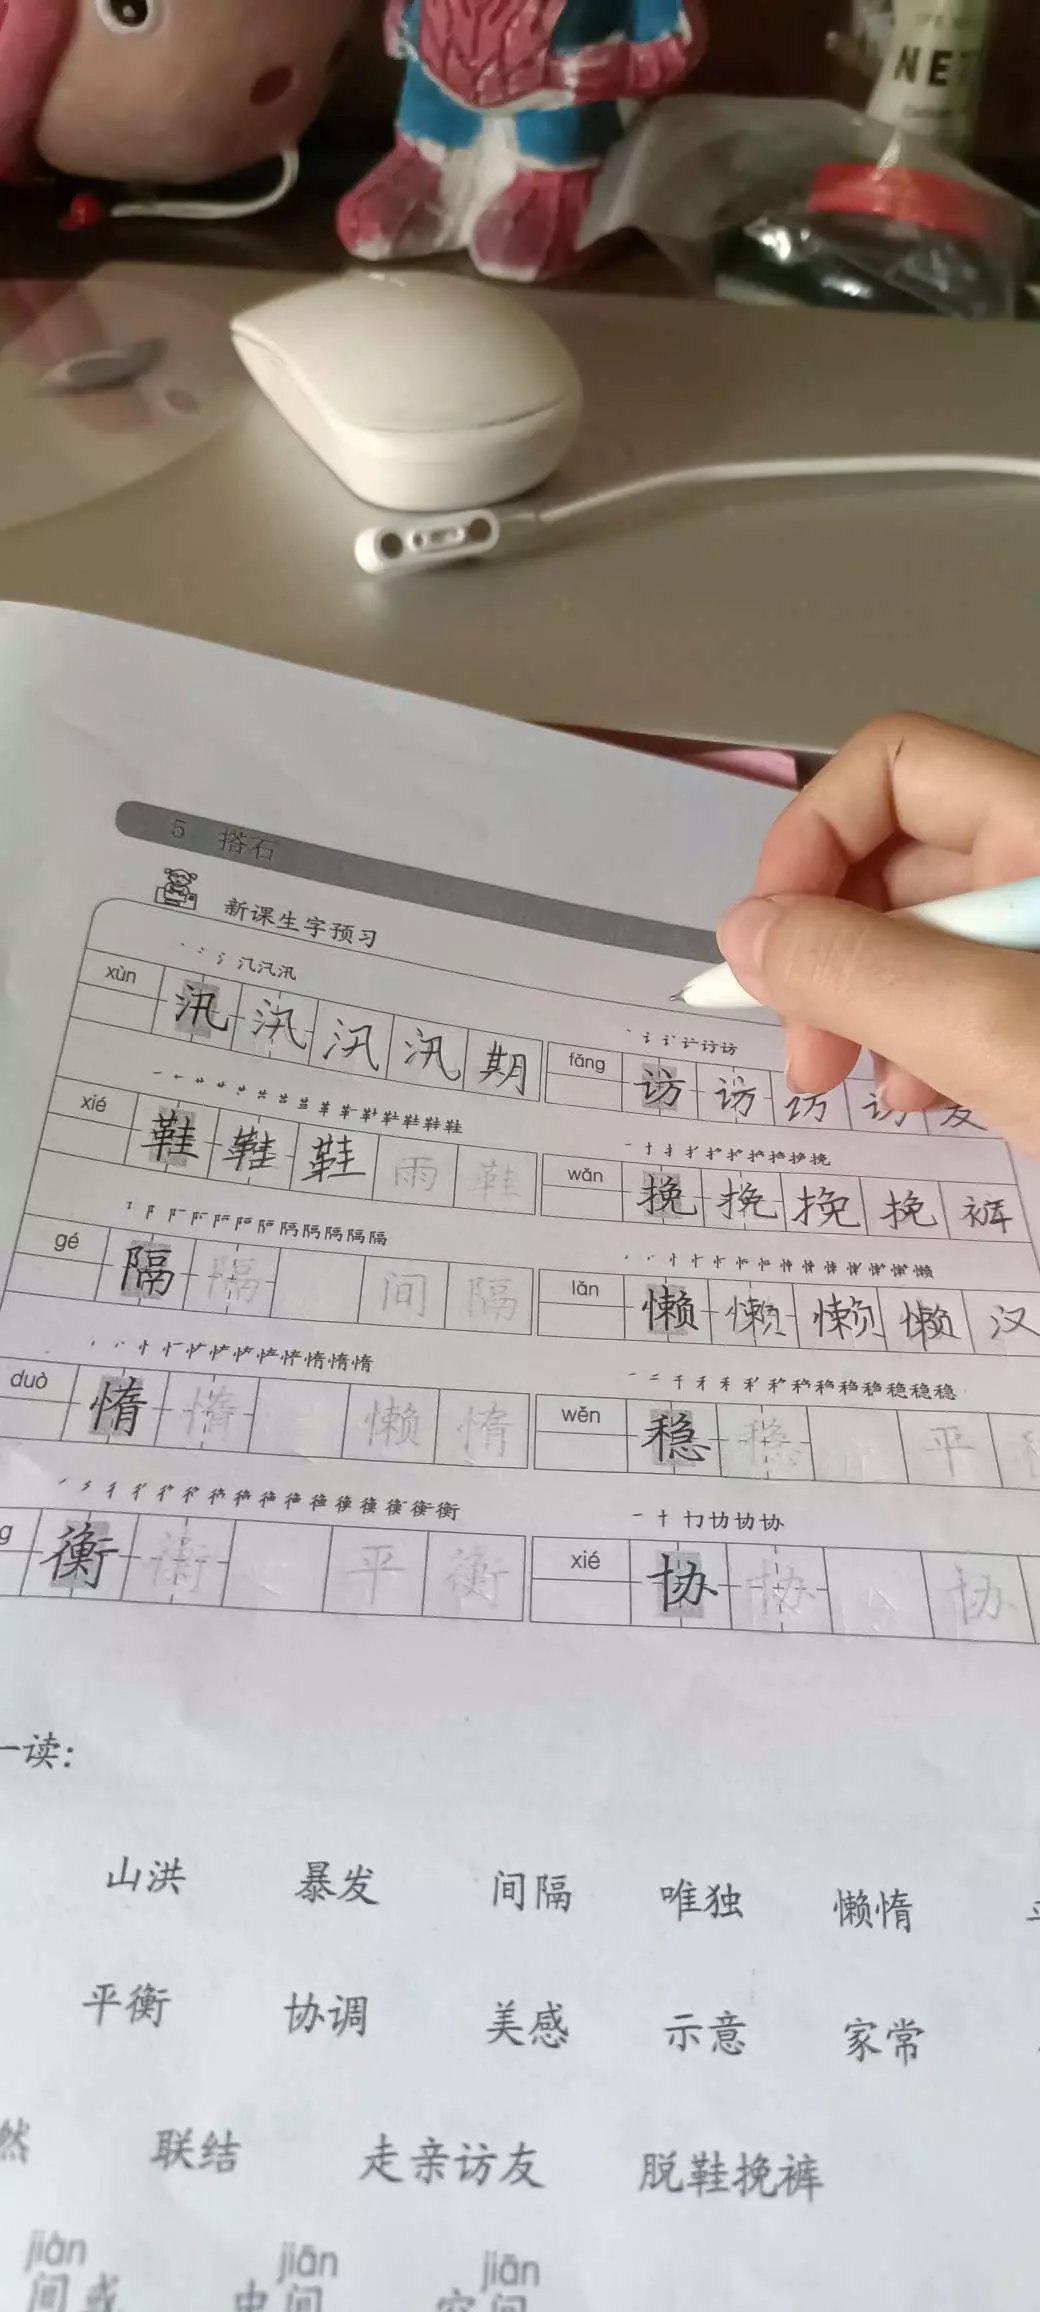 NET
5 搭石
新课生字预习
xùn 汛 汛 汛 汛 期
fǎng 访 访 访 访 友
xié 鞋 鞋 鞋 雨 鞋
wǎn 挽 挽 挽 挽 裤
gé 隔 隔 间 隔
lǎn 懒 懒 懒 懒 汉
duò 惰 惰 懒 惰
wěn 稳 稳 平 稳
g 衡 衡 平 衡
xié 协 协 协
一读:
山洪 暴发 间隔 唯独 懒惰
平衡 协调 美感 示意 家常
然 联结 走亲访友 脱鞋挽裤
jiàn jiān jiān
间或 中间 空间